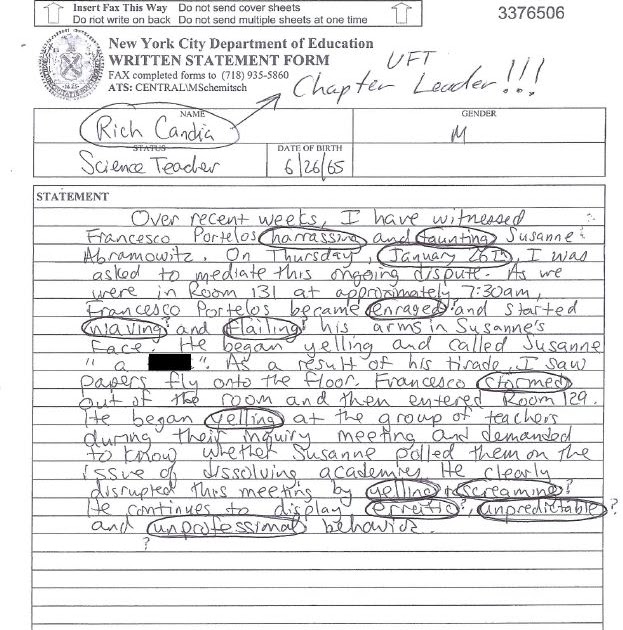 Insert Fax This Way Do not send cover sheets
Do not write on back Do not send multiple sheets at one time
3376506
New York City Department of Education
WRITTEN STATEMENT FORM
FAX completed forms to (718) 935-5860
ATS: CENTRAL\MSchemitsch
UFT
Chapter Leader!!!
NAME
GENDER
Rich Candia
M
STATUS
DATE OF BIRTH
Science Teacher
6/26/65
STATEMENT
Over recent weeks, I have witnessed
Francesco Portelos harrassing and taunting Susanne
Abramowitz. On Thursday, January 26th, I was
asked to mediate this ongoing dispute. As we
were in Room 131 at approximately 7:30am,
Francesco Portelos became enraged and started
waving and flailing his arms in Susanne's
face. He began yelling and called Susanne
"a ". As a result of his tirade, I saw
papers fly onto the floor. Francesco stormed
out of the room and then entered Room 129.
He began yelling at the group of teachers
during their inquiry meeting and demanded
to know whether Susanne polled them on the
issue of dissolving academies. He clearly
disrupted this meeting by yelling + screaming?
He continues to display erreitic?, unpredictable?
and unprofessional behavior.
?